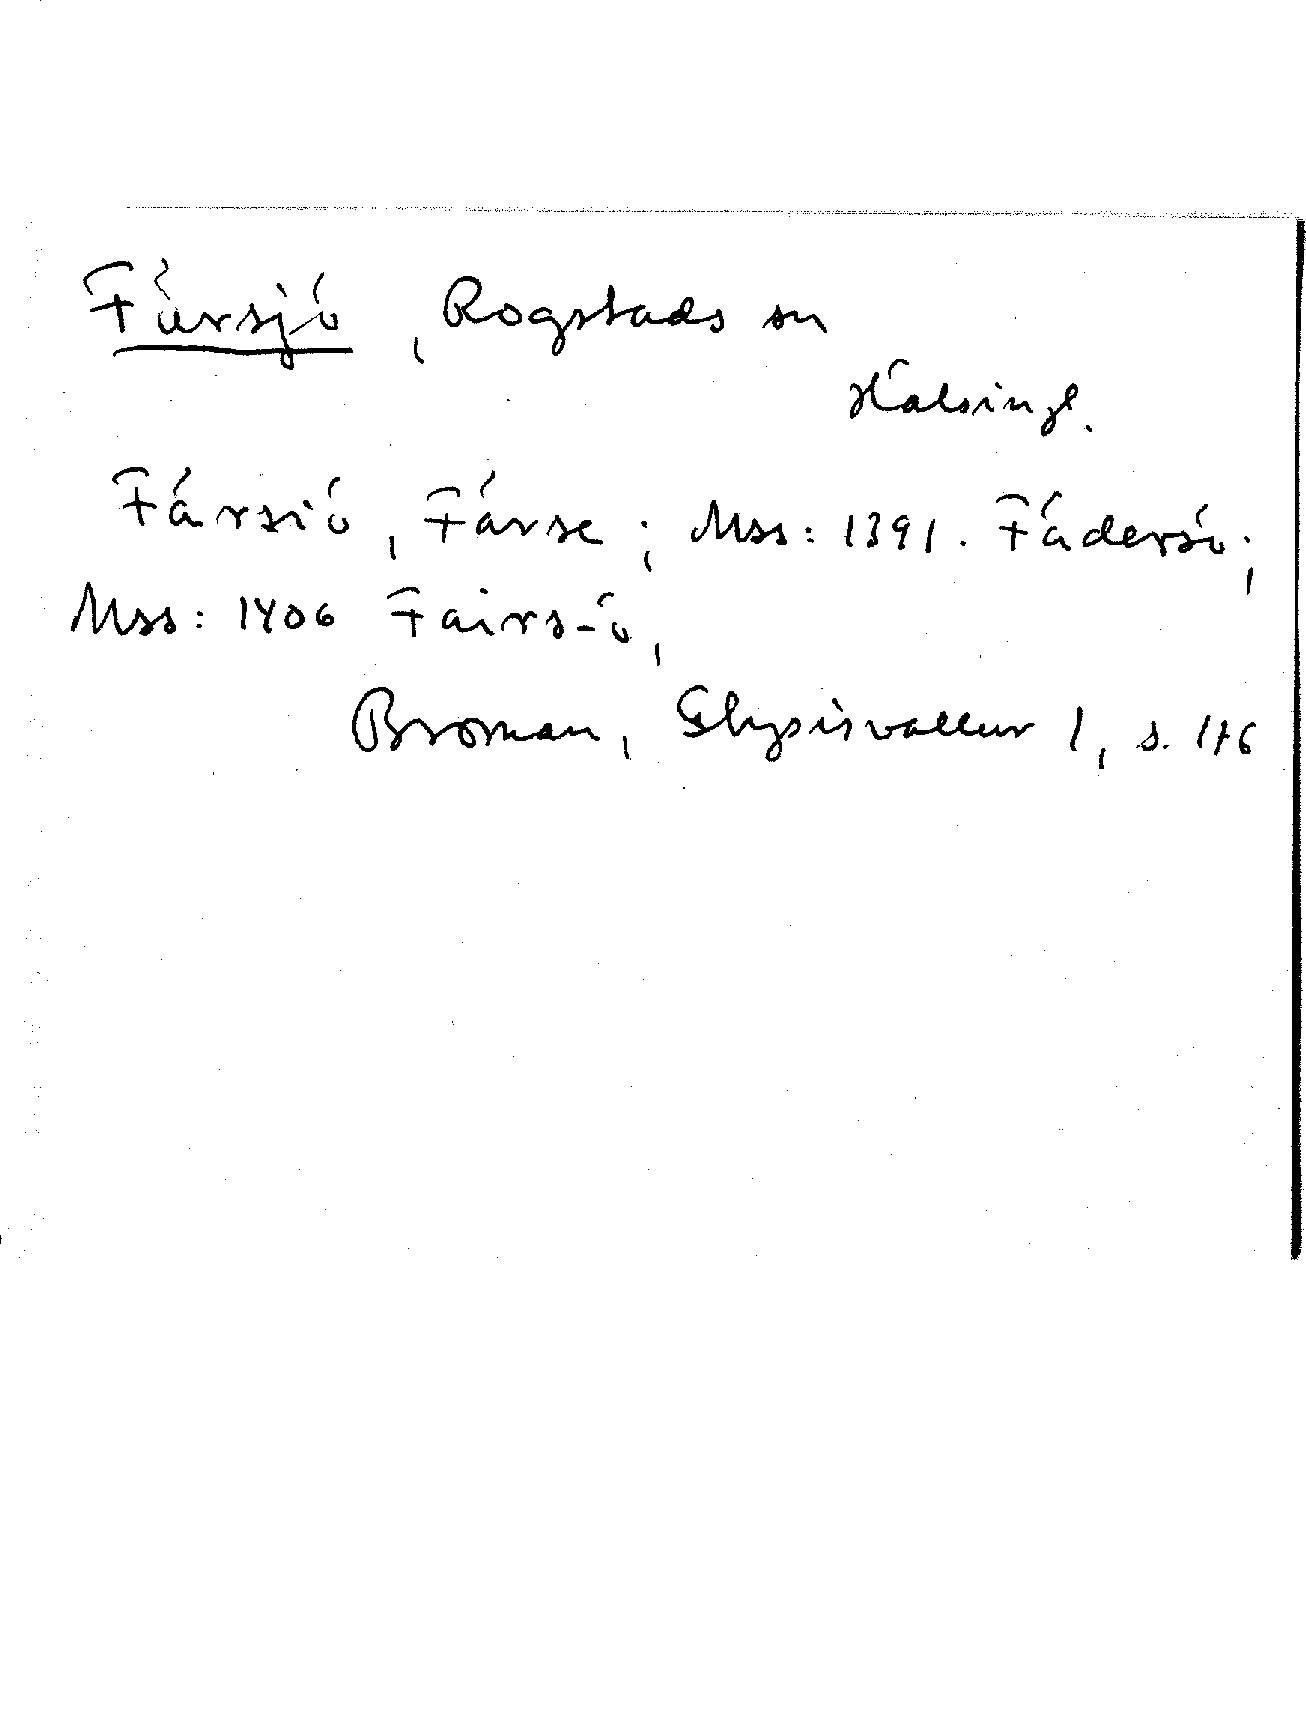 Färsjö, Rogstads sn
Hälsingl.
Färsiö, Färse; Mss: 1391. Fädersö;
Mss: 1406 Fairs-ö,
Broman, Glysisvallur 1, s. 176